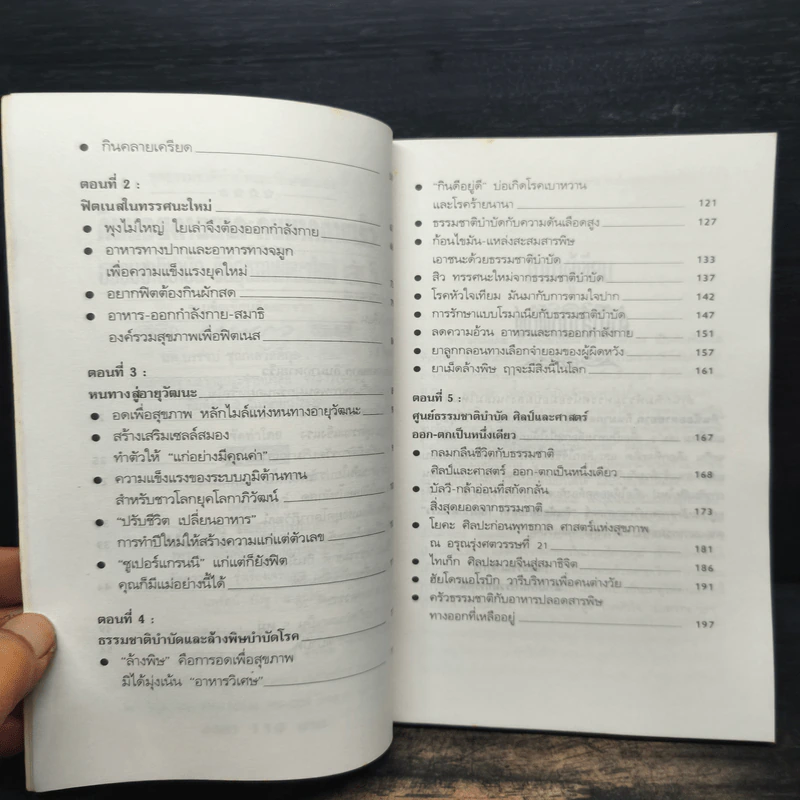 ● กินคลายเครียด
ตอนที่ 2 :
ฟิตเนสในทรรศนะใหม่
● พุงไม่ใหญ่ ใยเล่าจึงต้องออกกำลังกาย
● อาหารทางปากและอาหารทางจมูก
เพื่อความแข็งแรงยุคใหม่
● อยากฟิตต้องกินผักสด
● อาหาร-ออกกำลังกาย-สมาธิ
องค์รวมสุขภาพเพื่อฟิตเนส
ตอนที่ 3 :
หนทางสู่อายุวัฒนะ
● อดเพื่อสุขภาพ หลักไมล์แห่งหนทางอายุวัฒนะ
● สร้างเสริมเซลล์สมอง
ทำตัวให้ "แก่อย่างมีคุณค่า"
● ความแข็งแรงของระบบภูมิต้านทาน
สำหรับชาวโลกยุคโลกาภิวัฒน์
● "ปรับชีวิต เปลี่ยนอาหาร"
การทำปีใหม่ให้สร้างความแก่แต่ตัวเลข
● "ซูเปอร์แกรนนี" แก่แต่ก็ยังฟิต
คุณก็มีแม่อย่างนี้ได้
ตอนที่ 4 :
ธรรมชาติบำบัดและล้างพิษบำบัดโรค
● "ล้างพิษ" คือการอดเพื่อสุขภาพ
มิได้มุ่งเน้น "อาหารวิเศษ"
● "กินดีอยู่ดี" บ่อเกิดโรคเบาหวาน
และโรคร้ายนานา 121
● ธรรมชาติบำบัดกับความดันเลือดสูง 127
● ก้อนไขมัน-แหล่งสะสมสารพิษ
เอาชนะด้วยธรรมชาติบำบัด 133
● สิว ทรรศนะใหม่จากธรรมชาติบำบัด 137
● โรคหัวใจเทียม มันมากับการตามใจปาก 142
● การรักษาแบบโรมาเนียกับธรรมชาติบำบัด 147
● ลดความอ้วน อาหารและการออกกำลังกาย 151
● ยาลูกกลอนทางเลือกจำยอมของผู้ผิดหวัง 157
● ยาเม็ดล้างพิษ ฤๅจะมีสิ่งนี้ในโลก 161
ตอนที่ 5 :
ศูนย์ธรรมชาติบำบัด ศิลป์และศาสตร์
ออก-ตกเป็นหนึ่งเดียว 167
● กลมกลืนชีวิตกับธรรมชาติ
ศิลป์และศาสตร์ ออก-ตกเป็นหนึ่งเดียว 168
● บัลวี-กล้าอ่อนที่สกัดกลั่น
สิ่งสุดยอดจากธรรมชาติ 173
● โยคะ ศิลปะก่อนพุทธกาล ศาสตร์แห่งสุขภาพ
ณ อรุณรุ่งศตวรรษที่ 21 181
● ไทเก็ก ศิลปะมวยจีนสู่สมาธิจิต 186
● ฮัยโดรแอโรบิก วารีบริหารเพื่อคนต่างวัย 191
● ครัวธรรมชาติกับอาหารปลอดสารพิษ
ทางออกที่เหลืออยู่ 197